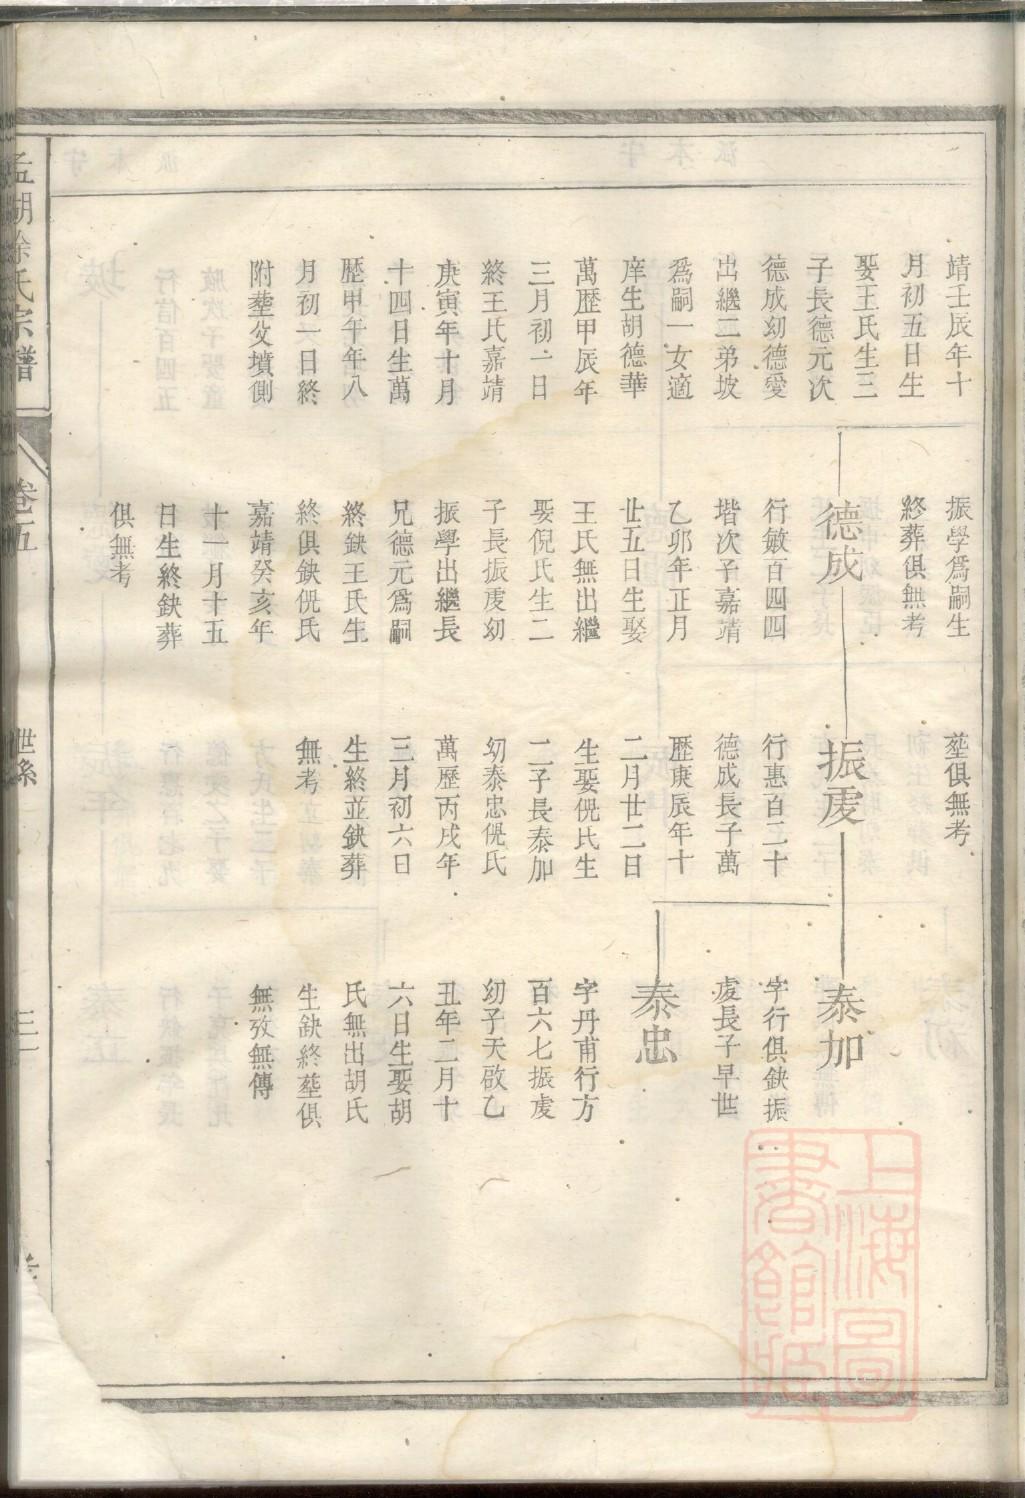 靖壬辰年十
月初五日生
娶王氏生三
子長德元次
德成幼德愛
出繼二弟坡
爲嗣一女適
庠生胡德華
萬歷甲辰年
三月初一日
終王氏嘉靖
庚寅年十月
十四日生萬
歷甲午年八
月初一日終
附塟父墳側
振學爲嗣生
終葬俱無考
德成
行敏百四四
堦次子嘉靖
乙卯年正月
廿五日生娶
王氏無出繼
娶倪氏生二
子長振虔幼
振學出繼長
兄德元爲嗣
終缺王氏生
終俱缺倪氏
嘉靖癸亥年
十一月十五
日生終缺葬
俱無考
塟俱無考
振虔
行惠百二十
德成長子萬
歷庚辰年十
二月廿二日
生娶倪氏生
二子長泰加
幼泰忠倪氏
萬歷丙戌年
三月初六日
生終並缺葬
無考
泰加
字行俱缺振
虔長子早世
泰忠
字丹甫行方
百六七振虔
幼子天啟乙
丑年二月十
六日生娶胡
氏無出胡氏
生缺終塟俱
無攷無傳
孟湖徐氏宗譜
卷五
世系
上海圖
書館藏